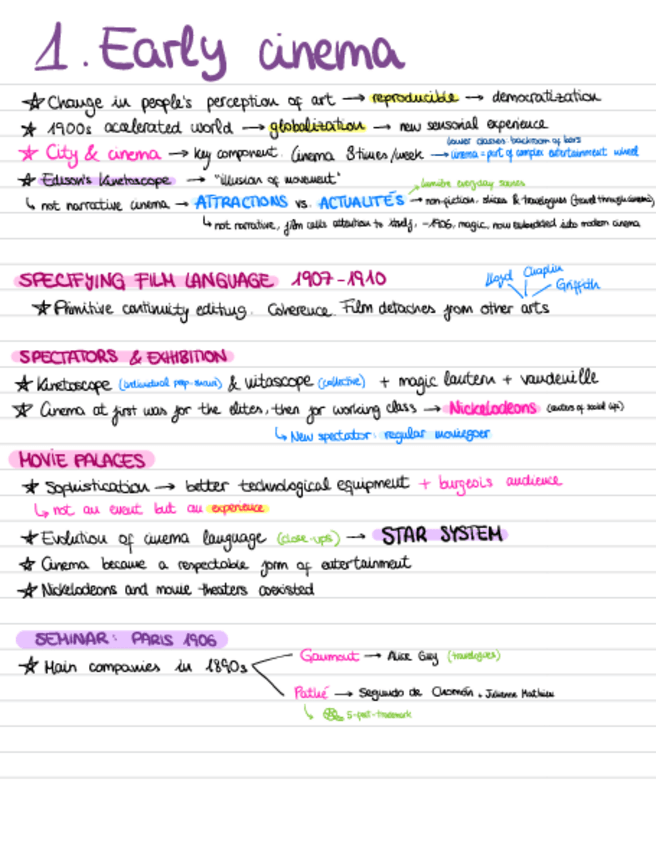 1. Early cinema
☆ Change in people's perception of art → reproducible → democratization
☆ 1900s accelerated world → globalization → new sensorial experience
lower classes backroom of bars
☆ City & cinema → key component. Cinema 3 times/week → cinema = part of complex entertainment wheel
☆ Edison's Kinetoscope → "illusion of movement"
lumière everyday scenes
↳ not narrative cinema → ATTRACTIONS vs. ACTUALITÉS → non-fiction, slices & travelogues (travel through cinema)
↳ not narrative, film calls attention to itself, -1906, magic, now embedded into modern cinema
SPECIFYING FILM LANGUAGE 1907-1910
Lloyd Chaplin Griffith
☆ Primitive continuity editing. Coherence. Film detaches from other arts
SPECTATORS & EXHIBITION
☆ Kinetoscope (individual peep-shows) & vitascope (collective) + magic lantern + vaudeville
☆ Cinema at first was for the elites, then for working class → Nickelodeons (centers of social life)
↳ New spectator: regular moviegoer
MOVIE PALACES
☆ Sophistication → better technological equipment + burgeois audience
↳ not an event but an experience
☆ Evolution of cinema language (close-ups) → STAR SYSTEM
☆ Cinema became a respectable form of entertainment
☆ Nickelodeons and movie theaters coexisted
SEMINAR: PARIS 1906
☆ Main companies in 1890s
Gaumont → Alice Guy (travelogues)
Pathé → Segundo de Chomón + Julienne Mathieu